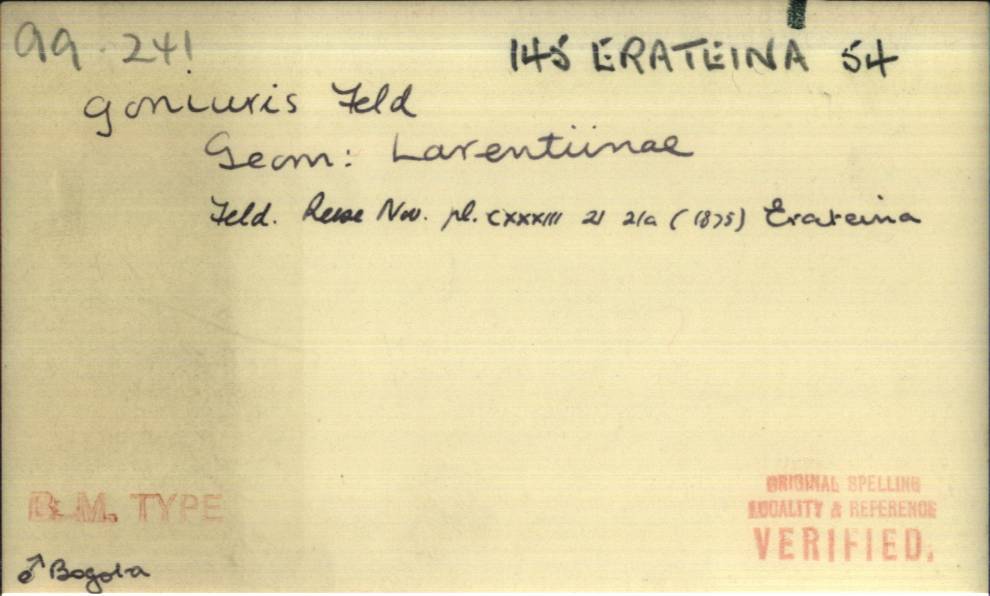 99.241 145 ERATEINA 54
goniuris Feld
Geom: Larentiinae
Feld. Reise Nov. pl. CXXXIII 21 21a (1875) Erateina
B.M. TYPE
♂ Bogota
ORIGINAL SPELLING
LOCALITY & REFERENCE
VERIFIED.